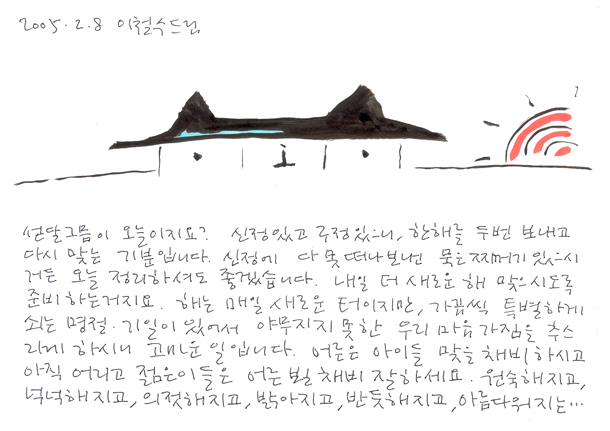 2005. 2. 8 이철수드림
섣달그믐이 오늘이지요? 신정있고 구정있으니, 한해를 두번 보내고
다시 맞는 기분입니다. 신정에 다 못 떠나보낸 묵은찌꺼기 있으시
거든 오늘 정리하셔도 좋겠습니다. 내일 더 새로운 해 맞으시도록
준비하는거지요. 해는 매일 새로운 터이지만, 가끔씩 특별하게
쇠는 명절·기일이 있어서 야무지지 못한 우리 마음가짐을 추스
리게 하시니 고마운 일입니다. 어른은 아이들 맞을 채비하시고
아직 어리고 젊은이들은 어른 뵐 채비 잘하세요. 원숙해지고,
넉넉해지고, 의젓해지고, 밝아지고, 반듯해지고, 아름다워지는…